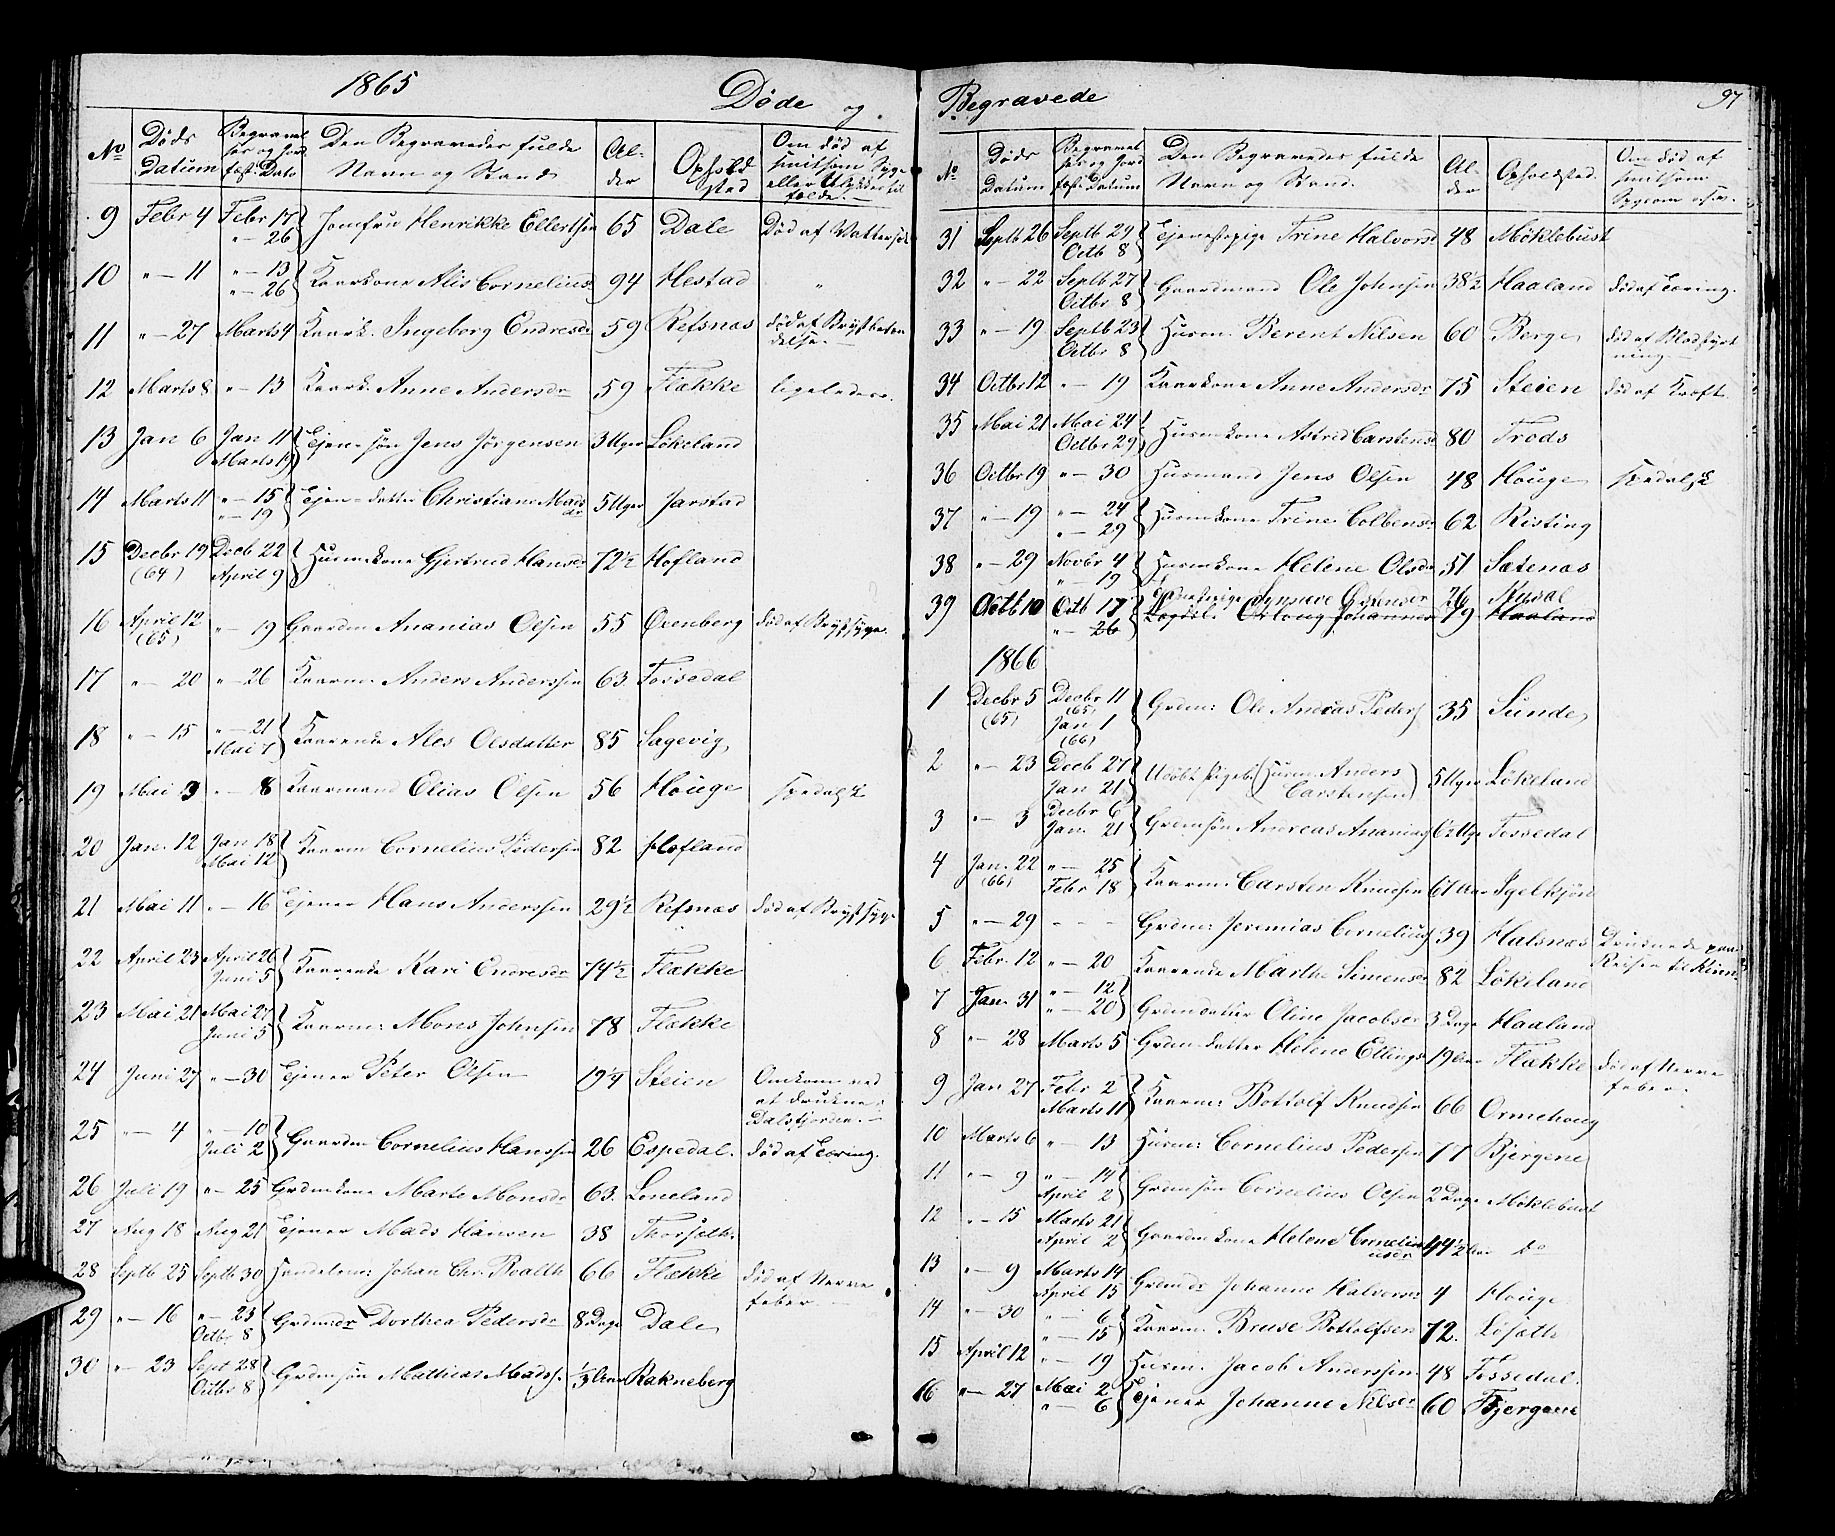 1865
Døde og
No Døds Datum Begravel ses og Jord fæst. Dato Den Begravedes fulde Navn og Stand Al- der Opholds sted Om død af smitsom Syge eller Ulykkestil fælde.
9 Febr 4 Febr 17 " - 26 Jomfru Henrikke Ellertsen 65 Dale Død af Vattersot
10 " - 11 " - 13 " - 26 Kaarkone Alis Cornelius 94 Hestad "
11 " - 27 Marts 4 Kaark. Ingeborg Endresdr 59 Refsnæs død af Brystbeten delse.
12 Marts 8 " - 13 Kaark. Anne Andersdr 59 Flekke ligeledes.
13 Jan 6 Jan 11 Marts 19 Tjen - søn Jens Jørgensen 3 Uger Løkeland
14 Marts 11 " - 15 " - 19 Tjen - datter Christiane Mads dr 5 Uger Jarstad
15 Decbr 19 (64) Decb 22 April 9 Husmkone Gjertrud Hansdr 72 ½ Hofland
16 April 12 (65) " - 19 Gaardm Ananias Olsen 55 Øvenberg død af Brystsyge.
17 " - 20 " - 26 Kaarm: Anders Anderssen 63. Fossedal
18 " - 15 " - 21 Mai 7 Kaarenke Ales Olsdatter 85 Sagevig
19 Mai 3 " - 8 Kaarmand Elias Olsen 56 Houge spedalsk
20 Jan. 12 Jan 18 Mai 12 Kaarm Cornelius Pedersen 82 Hofland
21 Mai 11 " - 16 Tjener Hans Anderssen 29 ½ Refsnæs død af Brystsyge
22 April 23 April 26 Juni 5 Kaarenke Kari Endresdr 74 ½ Flekke
23 Mai 21 Mai 27 Juni 5 Kaarm: Mons Johnsen 78 Flekke
24 Juni 27 " - 30 Tjener Peter Olsen 19 ¼ Steien Omkom ved at drukne i Dalsfjorden.
25 " - 4 " - 10 Juli 2 Gaardm Cornelius Hanssen 26 Espedal. død af Tæring.
26 Juli 19 " - 25 Grdmkone Marte Monsdr 63. Loneland
27 Aug 18 Aug 21 Tjener Mads Hansen 38 Thorseth.
28 Septb 25 Septb 30 Handelsm: Johan Chr. 66 Flekke død af Nerve feber
29 " - 16 " - 23 Octbr 8 Grdmdr Dorthea Pedersdr 8 Dage Dale
30 " - 23 Sept 28 Octbr 8 Grdmsøn Mathias Mads. ⅓ Aar Rakneberg
Begravede
97
No Døds Datum Begravel ses og Jord fæst. Datum Den Begravedes fulde Navn og Stand. Al- der Opholdssted. Om død af smitsom Sygdom
31 Septb 26 Septb 29 Octb 8 Tjenestepige Trine Halvorsd 48 Møklebust
32 " - 22 Septb 27 Octbr 8 Gaardmand Ole Johnsen 38 ½ Haaland død af Tæring.
33 " - 19 Septb 23 Octbr 8 Husm. Berent Nilsen 60 Berge død af Blodstyrt ning
34 Octbr 12 " - 19 Kaarkone Anne Andersdr 75 Steien død af Kræft
35 Mai 21 Mai 24 Octbr 29 Husmkone Astrid Carstens 80 Trods
36 Octbr 19 " - 30 Husmand Jens Olsen 48 Houge spedalsk
37 " - 19 " - 24 " - 29 Husmkone Trine Colbens 62 Risting
38 " - 29 Novbr 4 " - 19 Husmkone Helene Olsdr 51 Sætenæs
39 Octb 10 Octb 17 " - 26 Synneve 26 Nusdal
Johannes 79 Haaland
1866
1 Decbr 5 (65) Decbr 11 (65) Jan 1 (66) Grdm: Ole Andreas Peders 35 Sunde
2 " - 23 Decb 27 Jan 21 Udøbt Pigeb. (Husm Anders Carstensen) 5 Uger Løkeland
3 " - 3 Decbr 6 Jan. 21 Grdmsøn Andreas Ananias 6 ½ Uge Fossedal
4 Jan. 22 (66) " - 25 Febr 18 Kaarm. Carsten Knudsen 67 Aar Igelkjøn
5 " - 29 - - - Grdm: Jeremias Cornelius 39 Halsnæs Druknede paa Reisen til Kinn
6 Febr. 12 " - 20 Kaarenke Marthe Simens 82 Løkeland
7 Jan. 31 " - 12 " - 20 Grdmdatter Oline Jacobsdr 3 Dage Haaland
8 " - 28 Marts 5 Grdm datter Helene Ellings 19 Aar Flekke død af Nerve feber.
9 Jan 27 Febr 2 Marts 11 Kaarm: Bottolf Knudsen 66 Ormehoug
10 Marts 6 " - 13 Husm: Cornelius Pedersen 77 Bjergene
11 " - 9 " - 14 April 2 Grdmsøn Cornelius Olsen 2 Dage Møklebust
12 " - 15 Marts 21 April 2 Gaardmkone Helene Corneli usdr 44 ½ Aar do
13 " - 9 Marts 14 April 15 Grdmdr Johanne Halvorsdr 4 Houge
14 " - 30 " - 6 " - 15 Kaarm. Bruse Bottolfsen 72. Løseth
15 April 12 " - 19 Husm. Jacob Anderssen 48 Fossedal.
16 " - 27 Mai 2 " - 6 Tjener Johanne Nilsdr 60 Bjergene